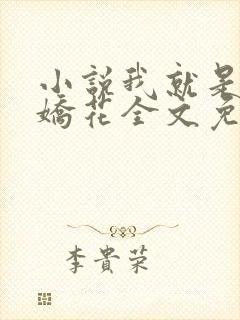 小說我就是
嬌花全文免
李貴榮